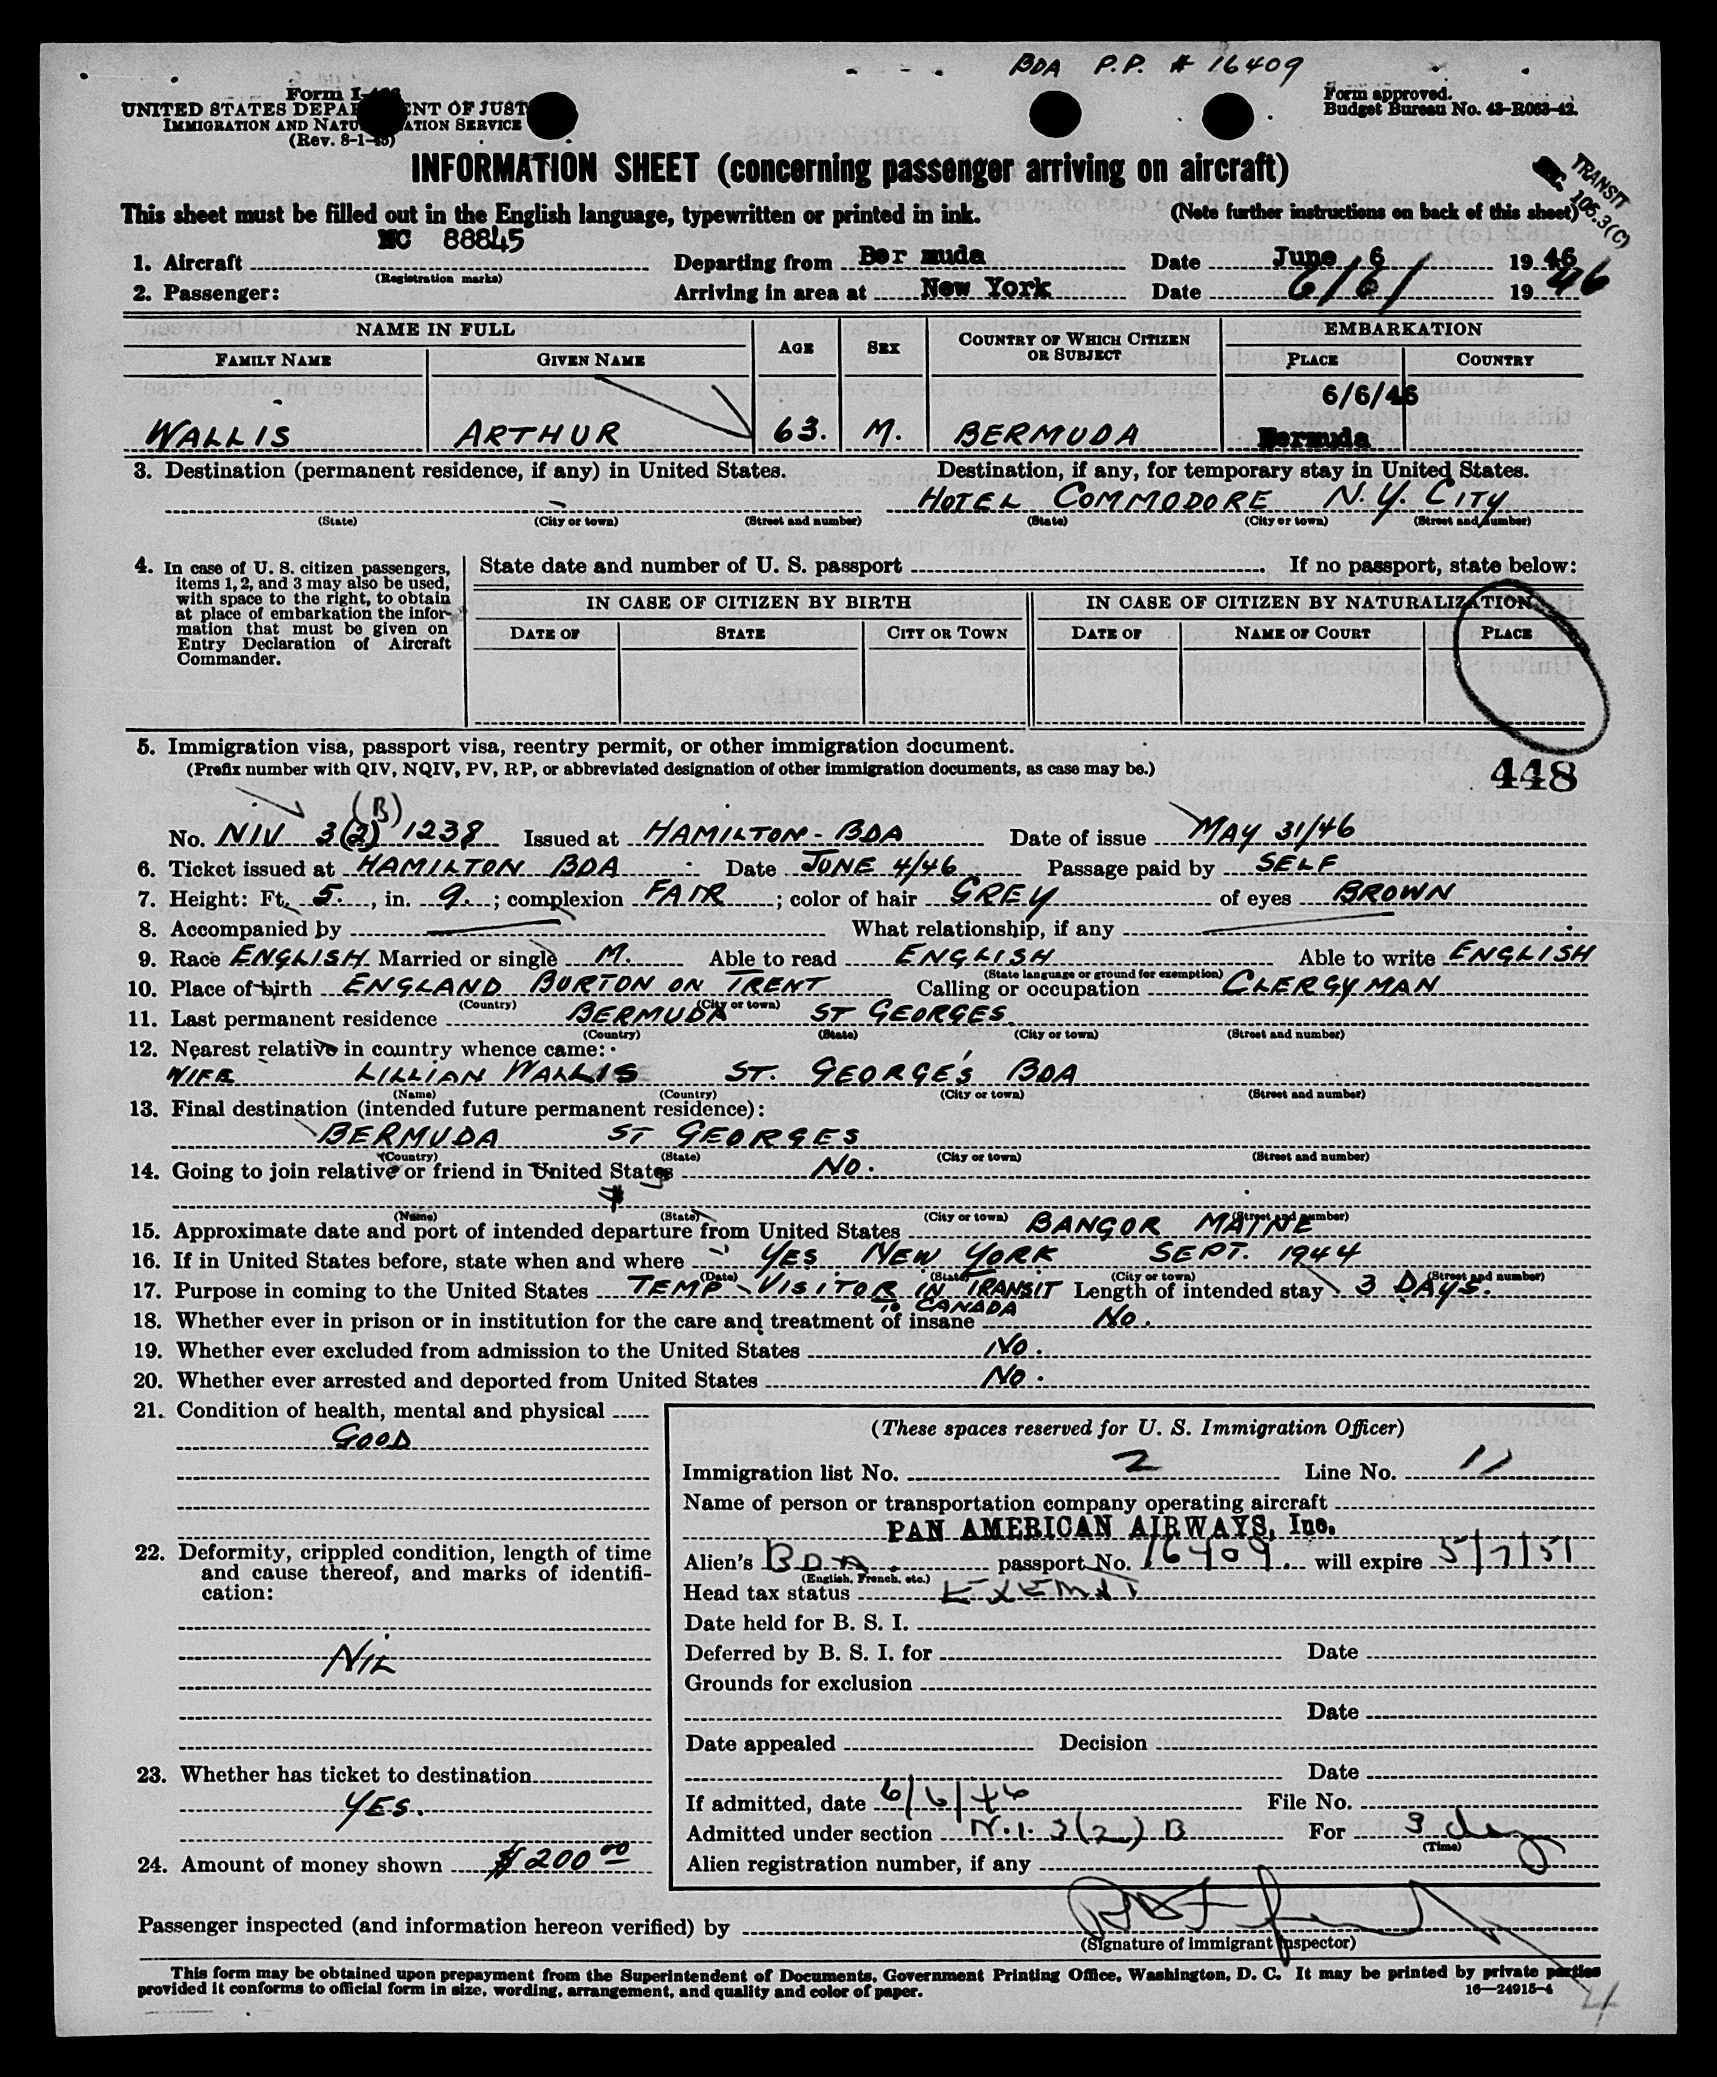 BDA P.P. # 16409
Form
UNITED STATES DEPARTMENT OF JUSTICE
IMMIGRATION AND NATURALIZATION SERVICE
(Rev. 8-1-45)
Form approved.
Budget Bureau No. 43-R063-42.
INFORMATION SHEET (concerning passenger arriving on aircraft)
TRANSIT
106.3(C)
This sheet must be filled out in the English language, typewritten or printed in ink. (Note further instructions on back of this sheet)
NC 88845
1. Aircraft Departing from Bermuda Date June 6 1946
(Registration marks)
2. Passenger: Arriving in area at New York Date 6/6/ 1946
NAME IN FULL AGE SEX COUNTRY OF WHICH CITIZEN OR SUBJECT EMBARKATION
FAMILY NAME GIVEN NAME PLACE COUNTRY
6/6/46
WALLIS ARTHUR 63. M. BERMUDA Bermuda
3. Destination (permanent residence, if any) in United States. Destination, if any, for temporary stay in United States.
HOTEL COMMODORE N.Y. CITY
(State) (City or town) (Street and number) (State) (City or town) (Street and number)
4. In case of U. S. citizen passengers, items 1, 2, and 3 may also be used, with space to the right, to obtain at place of embarkation the information that must be given on Entry Declaration of Aircraft Commander.
State date and number of U. S. passport If no passport, state below:
IN CASE OF CITIZEN BY BIRTH IN CASE OF CITIZEN BY NATURALIZATION
DATE OF STATE CITY OR TOWN DATE OF NAME OF COURT PLACE
5. Immigration visa, passport visa, reentry permit, or other immigration document.
(Prefix number with QIV, NQIV, PV, RP, or abbreviated designation of other immigration documents, as case may be.)
448
(B)
No. NIV 3(2) 1238 Issued at HAMILTON - BDA Date of issue MAY 31/46
6. Ticket issued at HAMILTON BDA Date JUNE 4/46 Passage paid by SELF
7. Height: Ft. 5., in. 9. ; complexion FAIR ; color of hair GREY of eyes BROWN
8. Accompanied by — What relationship, if any —
9. Race ENGLISH Married or single M. Able to read ENGLISH Able to write ENGLISH
(State language or ground for exemption)
10. Place of birth ENGLAND BURTON ON TRENT Calling or occupation CLERGYMAN
(Country) (City or town)
11. Last permanent residence BERMUDA ST GEORGES
(Country) (State) (City or town) (Street and number)
12. Nearest relative in country whence came:
WIFE LILLIAN WALLIS ST. GEORGE'S BDA
(Name) (Country) (City or town) (Street and number)
13. Final destination (intended future permanent residence):
BERMUDA ST GEORGES
(Country) (State) (City or town) (Street and number)
14. Going to join relative or friend in United States NO.
(Name) (State) (City or town) (Street and number)
15. Approximate date and port of intended departure from United States BANGOR MAINE
16. If in United States before, state when and where YES NEW YORK SEPT. 1944
(Date) (State) (City or town) (Street and number)
17. Purpose in coming to the United States TEMP VISITOR IN TRANSIT TO CANADA Length of intended stay 3 DAYS.
18. Whether ever in prison or in institution for the care and treatment of insane NO.
19. Whether ever excluded from admission to the United States NO.
20. Whether ever arrested and deported from United States NO.
21. Condition of health, mental and physical
GOOD
22. Deformity, crippled condition, length of time and cause thereof, and marks of identification:
NIL
23. Whether has ticket to destination
YES.
24. Amount of money shown $200 00
(These spaces reserved for U. S. Immigration Officer)
Immigration list No. 2 Line No. 11
Name of person or transportation company operating aircraft
PAN AMERICAN AIRWAYS, Inc.
Alien's BDA. passport No. 16409. will expire 5/7/51
(English, French, etc.)
Head tax status EXEMPT
Date held for B. S. I.
Deferred by B. S. I. for Date
Grounds for exclusion
Date
Date appealed Decision
Date
If admitted, date 6/6/46 File No.
Admitted under section N.I. 3(2) B For 3 days
(Time)
Alien registration number, if any
Passenger inspected (and information hereon verified) by
(Signature of immigrant inspector)
This form may be obtained upon prepayment from the Superintendent of Documents, Government Printing Office, Washington, D. C. It may be printed by private parties
provided it conforms to official form in size, wording, arrangement, and quality and color of paper. 16—24915-4
4